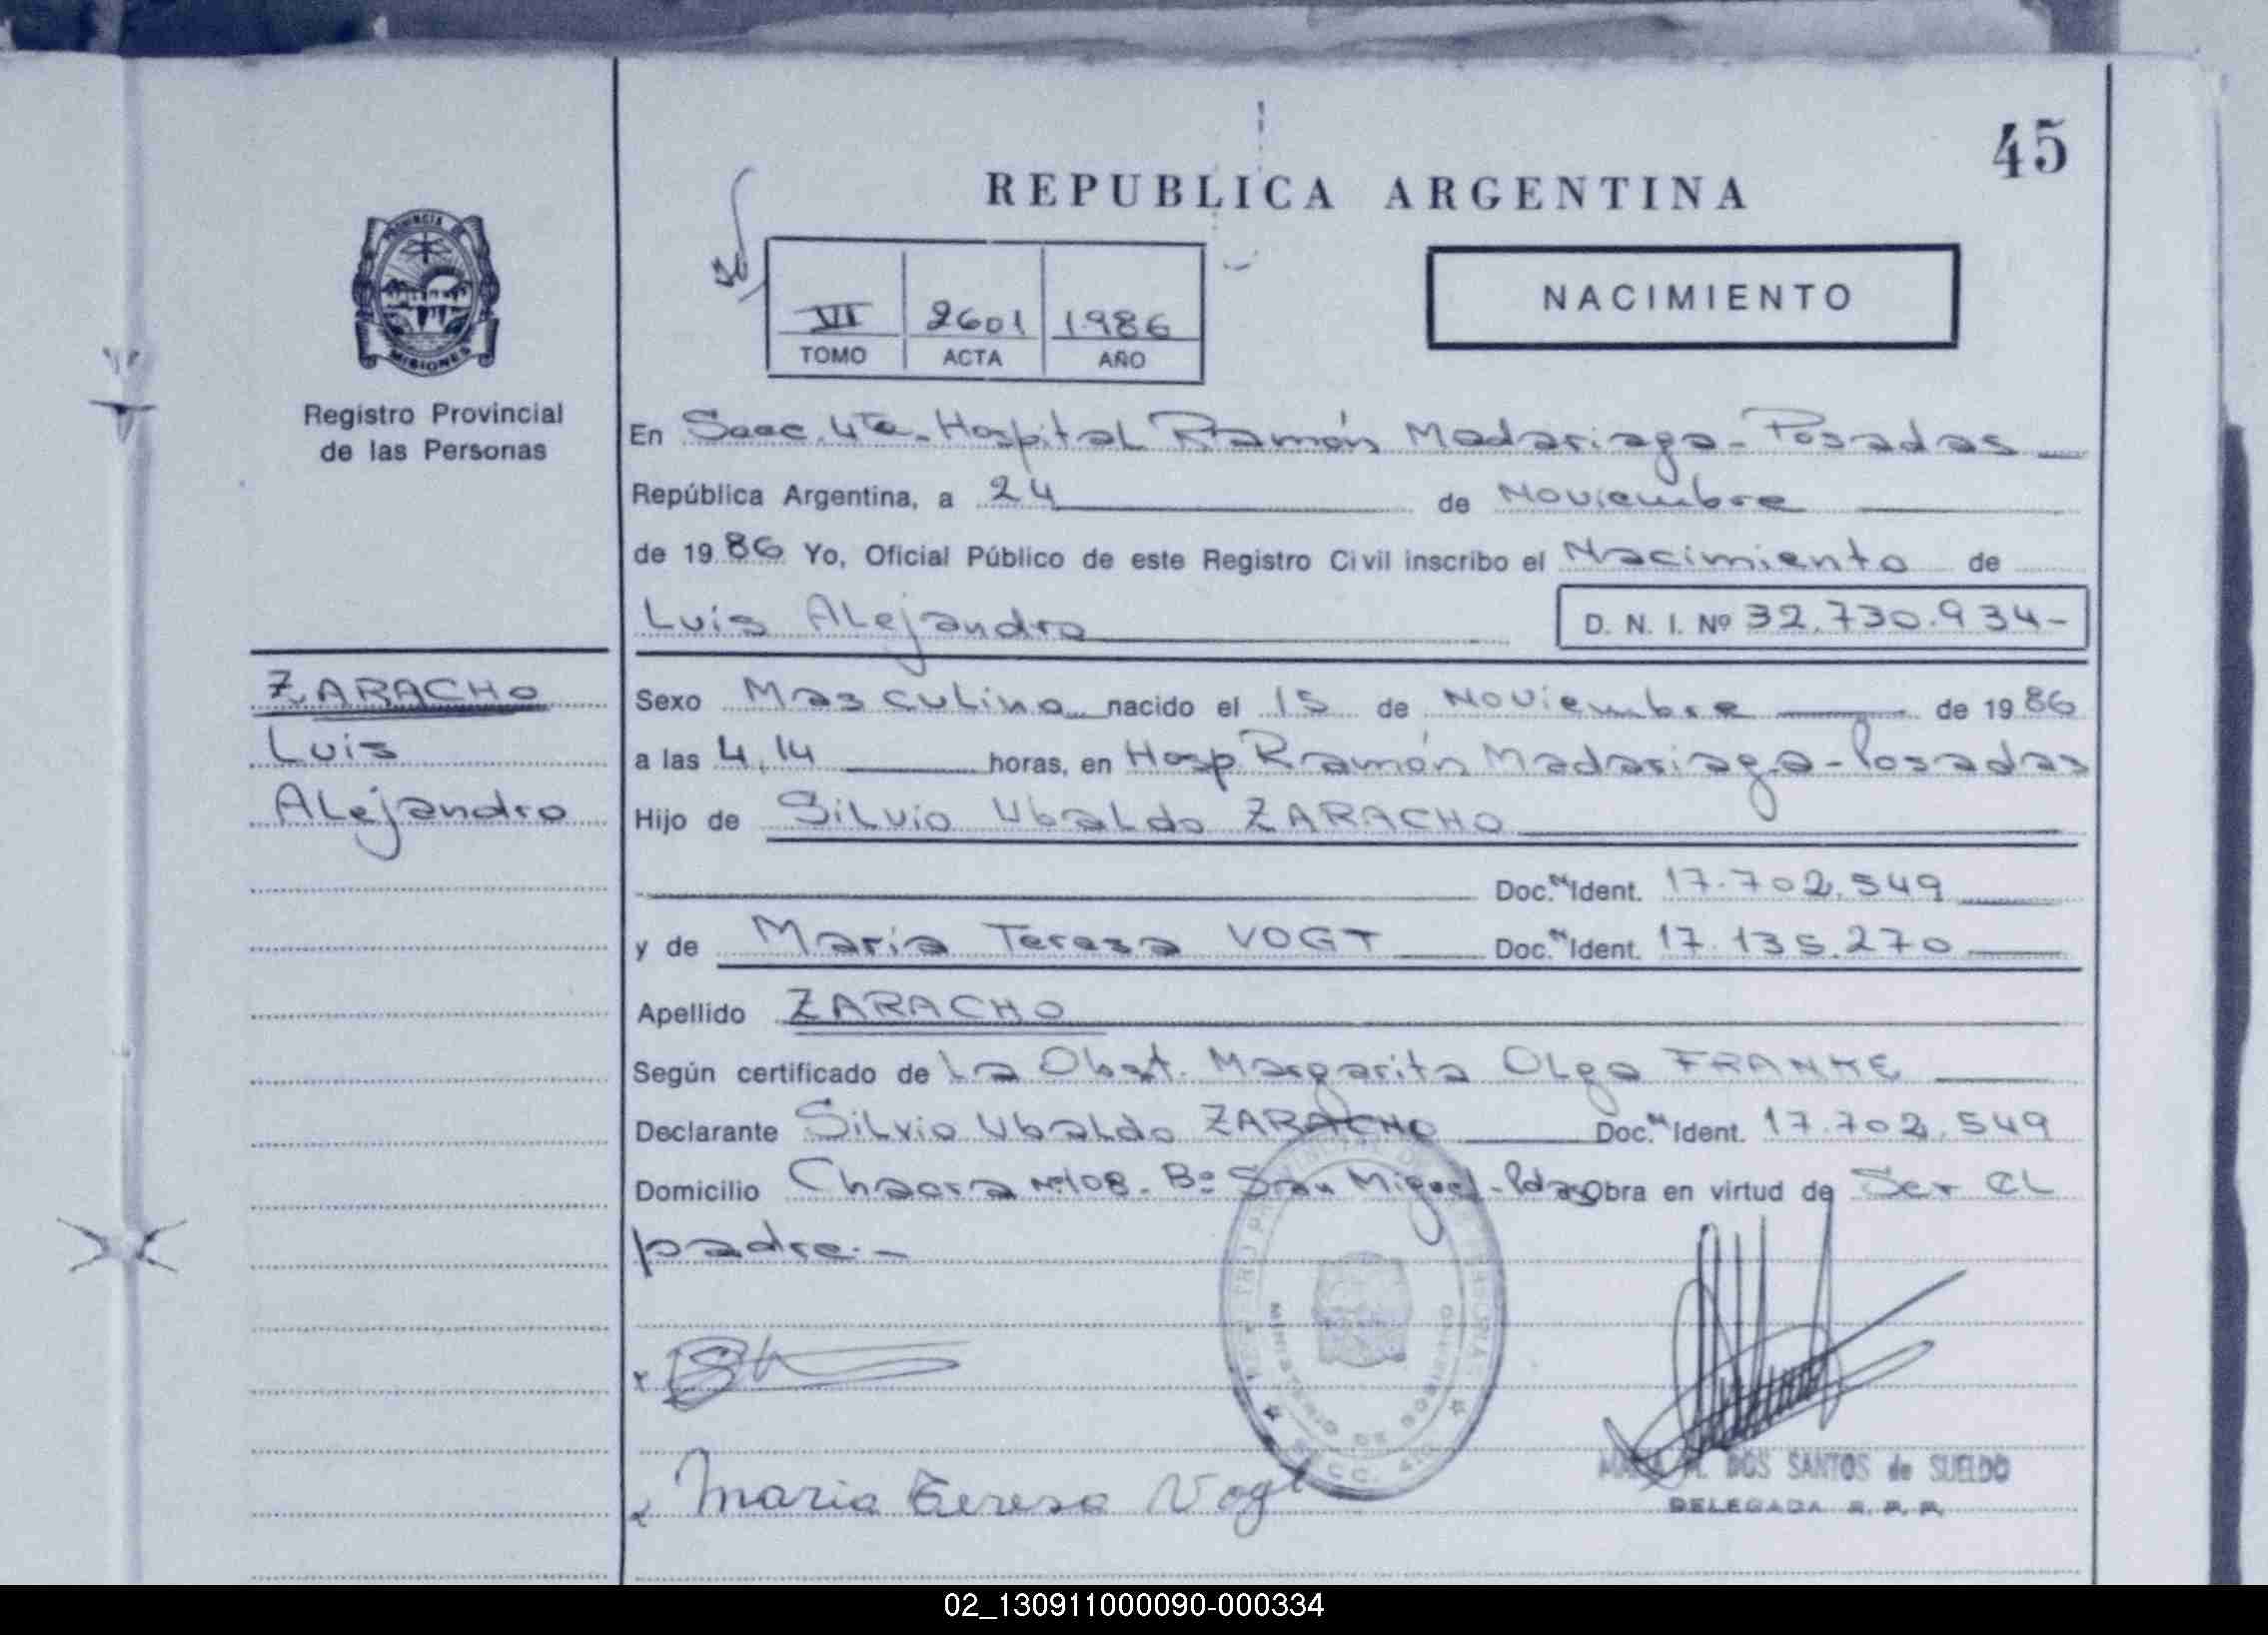 45
REPUBLICA ARGENTINA
PROVINCIA DE
MISIONES
Registro Provincial
de las Personas
VII 2601 1986
TOMO ACTA AÑO
NACIMIENTO
En Secc. 4ta - Hospital Ramón Madariaga - Posadas
República Argentina, a 24 de Noviembre
de 1986 Yo, Oficial Público de este Registro Civil inscribo el Nacimiento de
Luis Alejandro D. N. I. Nº 32.730.934-
ZARACHO
Luis
Alejandro
Sexo Masculino nacido el 15 de Noviembre de 1986
a las 4,14 horas, en Hosp Ramón Madariaga - Posadas
Hijo de Silvio Ubaldo ZARACHO
Doc. Ident. 17.702.549
y de María Teresa VOGT Doc. Ident. 17.135.270
Apellido ZARACHO
Según certificado de La Obst. Margarita Olga FRANKE
Declarante Silvio Ubaldo ZARACHO Doc. Ident. 17.702.549
Domicilio Chacra Nº108 - Bº San Miguel - Pdas Obra en virtud de Ser el
padre.-
MINISTERIO DE GOBIERNO
Maria Teresa Vogt
DOS SANTOS de SUELDO
DELEGADA R. P. P.
02_130911000090-000334